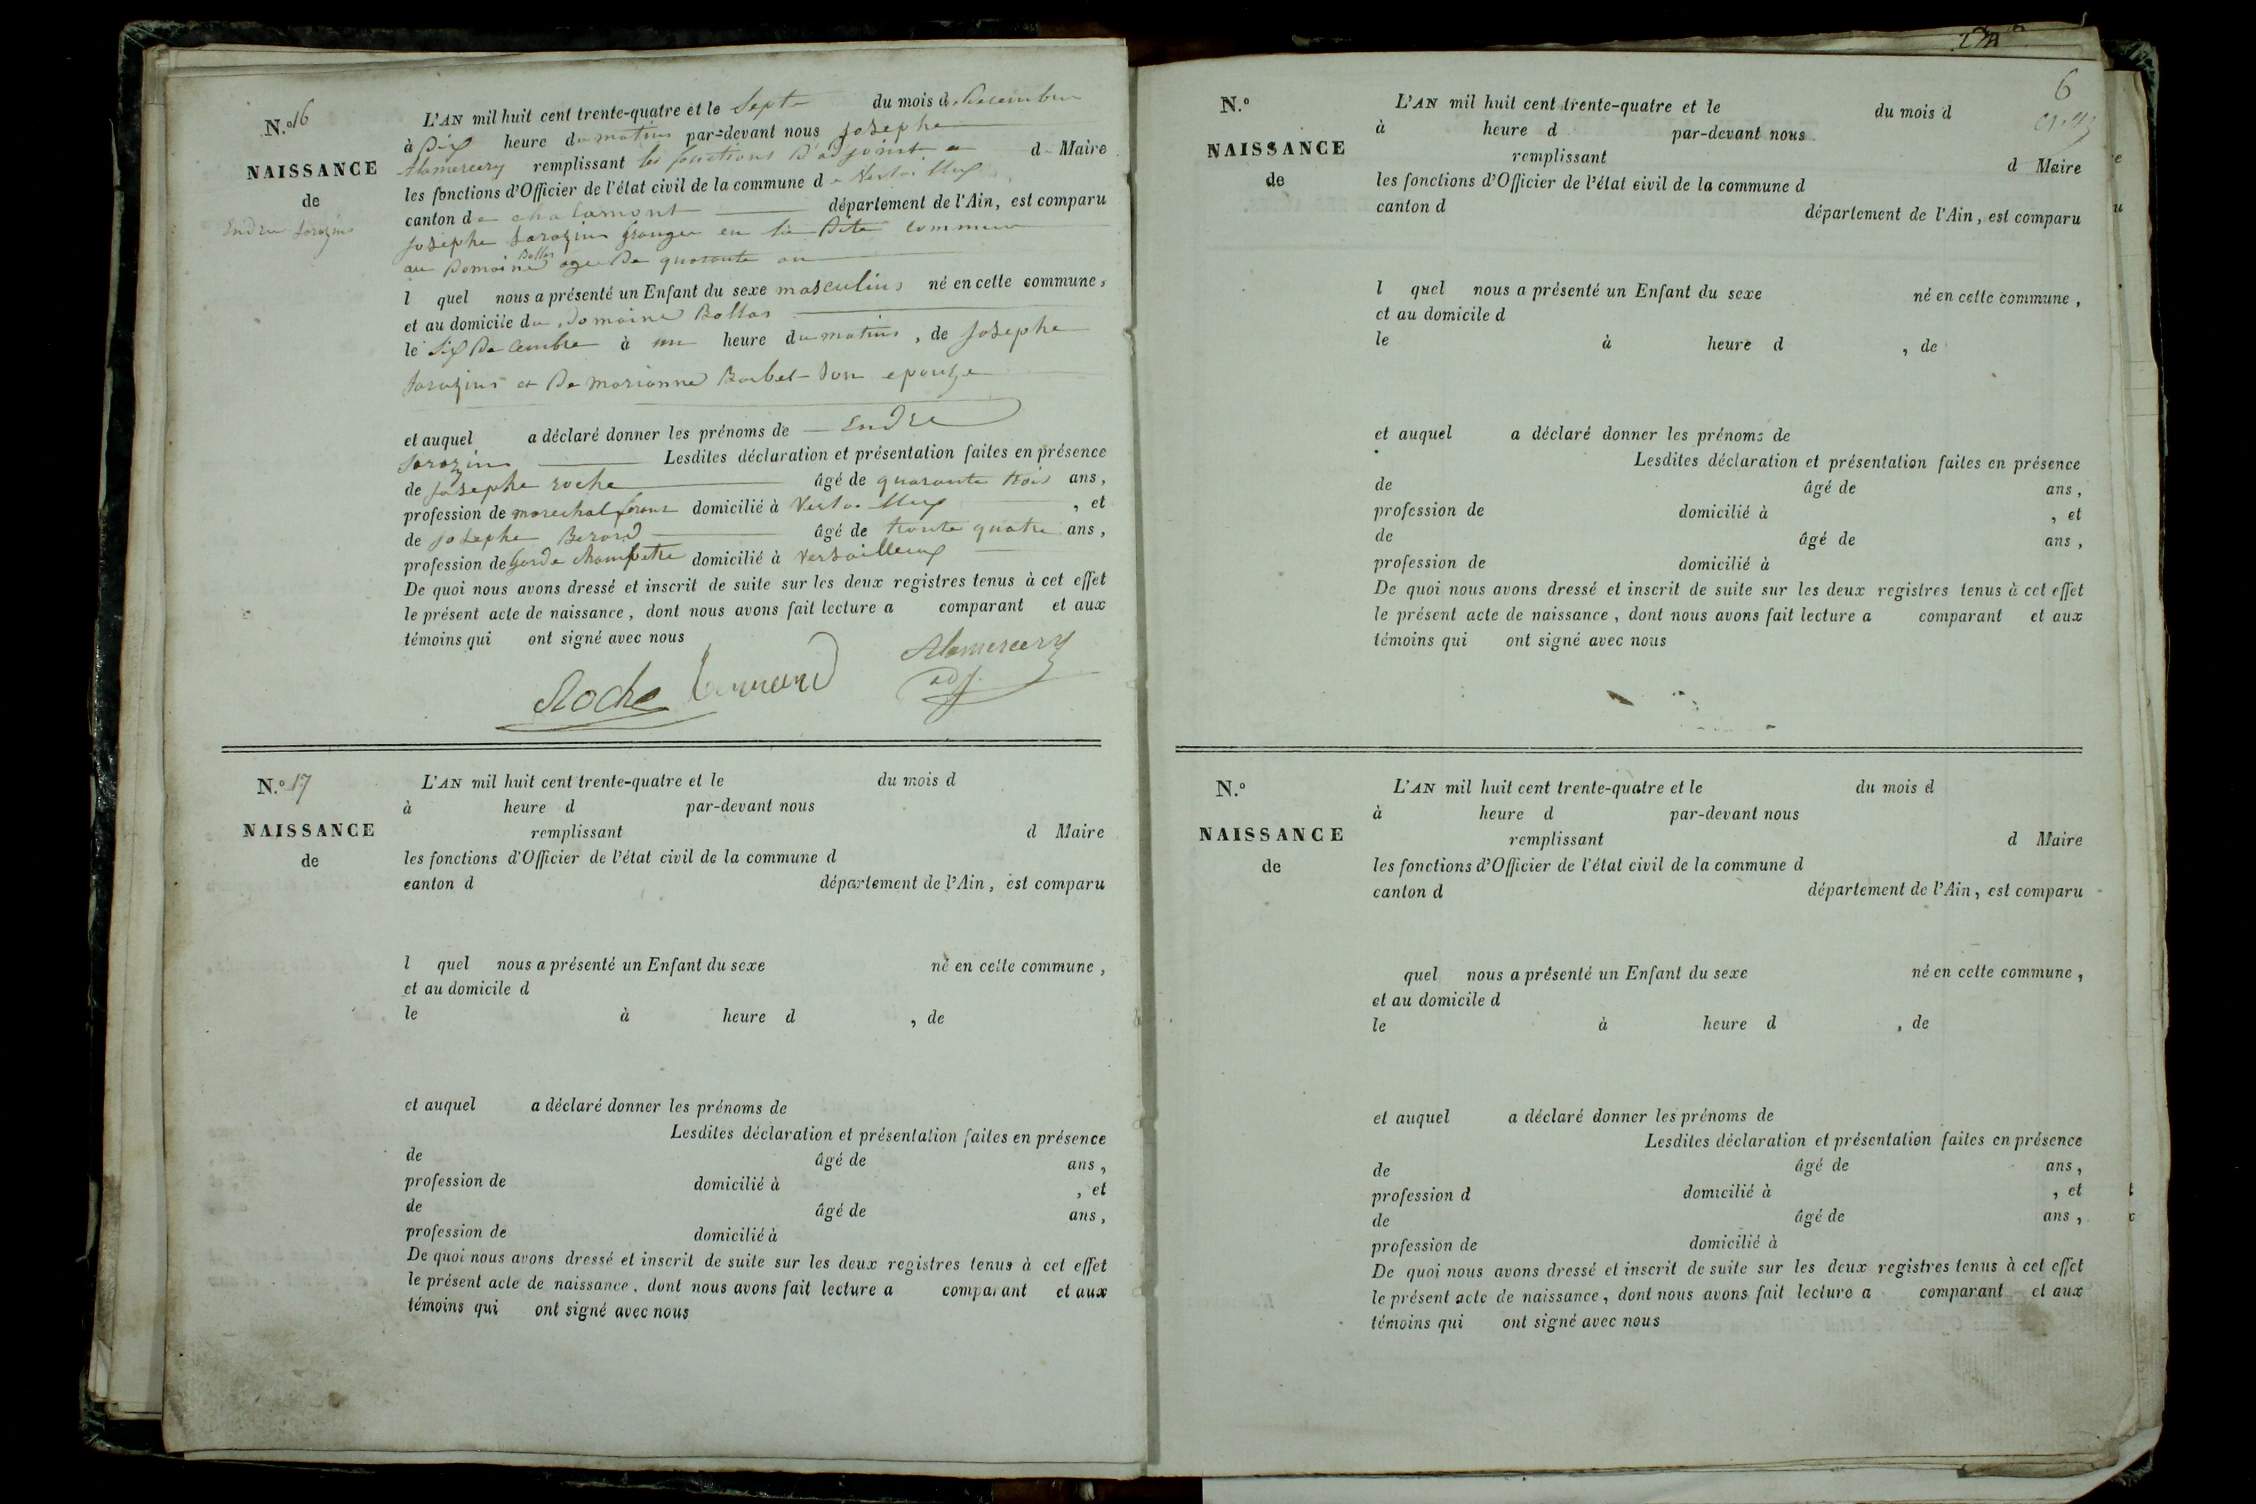 N.º 16
NAISSANCE
de
Endre Sarazins
L'AN mil huit cent trente-quatre et le Sept du mois de Decembre
à Dix heure du matins par-devant nous Josephe
Alamercery remplissant les fonctions D'adjoint d Maire
les fonctions d'Officier de l'état civil de la commune de
canton de chalamont département de l'Ain, est comparu
Josephe Sarazins Granger en la Dite commune
au Domaine Bollas age De quarante an
l quel nous a présenté un Enfant du sexe masculins né en cette commune,
et au domicile du Domaine Bollas
le Six Decembre à une heure du matins, de Josephe
Sarazins et De Marianne Barbet Son epouze
et auquel a déclaré donner les prénoms de Endre
Sarazins Lesdites déclaration et présentation faites en présence
de Josephe roche âgé de quarante trois ans,
profession de marechal ferant domicilié à , et
de Josephe Berard âgé de trente quatre ans,
profession de Garde champetre domicilié à Versailleux
De quoi nous avons dressé et inscrit de suite sur les deux registres tenus à cet effet
le présent acte de naissance, dont nous avons fait lecture a comparant et aux
témoins qui ont signé avec nous
Roche Alamercery
adj.
N.º 17
NAISSANCE
de
L'AN mil huit cent trente-quatre et le du mois d
à heure d par-devant nous
remplissant d Maire
les fonctions d'Officier de l'état civil de la commune d
canton d département de l'Ain, est comparu
l quel nous a présenté un Enfant du sexe né en cette commune,
et au domicile d
le à heure d , de
et auquel a déclaré donner les prénoms de
Lesdites déclaration et présentation faites en présence
de âgé de ans,
profession de domicilié à , et
de âgé de ans,
profession de domicilié à
De quoi nous avons dressé et inscrit de suite sur les deux registres tenus à cet effet
le présent acte de naissance, dont nous avons fait lecture a comparant et aux
témoins qui ont signé avec nous
6
N.º
NAISSANCE
de
L'AN mil huit cent trente-quatre et le du mois d
à heure d par-devant nous
remplissant d Maire
les fonctions d'Officier de l'état civil de la commune d
canton d département de l'Ain, est comparu
l quel nous a présenté un Enfant du sexe né en cette commune,
et au domicile d
le à heure d , de
et auquel a déclaré donner les prénoms de
Lesdites déclaration et présentation faites en présence
de âgé de ans,
profession de domicilié à , et
de âgé de ans,
profession de domicilié à
De quoi nous avons dressé et inscrit de suite sur les deux registres tenus à cet effet
le présent acte de naissance, dont nous avons fait lecture a comparant et aux
témoins qui ont signé avec nous
N.º
NAISSANCE
de
L'AN mil huit cent trente-quatre et le du mois d
à heure d par-devant nous
remplissant d Maire
les fonctions d'Officier de l'état civil de la commune d
canton d département de l'Ain, est comparu
quel nous a présenté un Enfant du sexe né en cette commune,
et au domicile d
le à heure d , de
et auquel a déclaré donner les prénoms de
Lesdites déclaration et présentation faites en présence
de âgé de ans,
profession d domicilié à , et
de âgé de ans,
profession de domicilié à
De quoi nous avons dressé et inscrit de suite sur les deux registres tenus à cet effet
le présent acte de naissance, dont nous avons fait lecture a comparant et aux
témoins qui ont signé avec nous